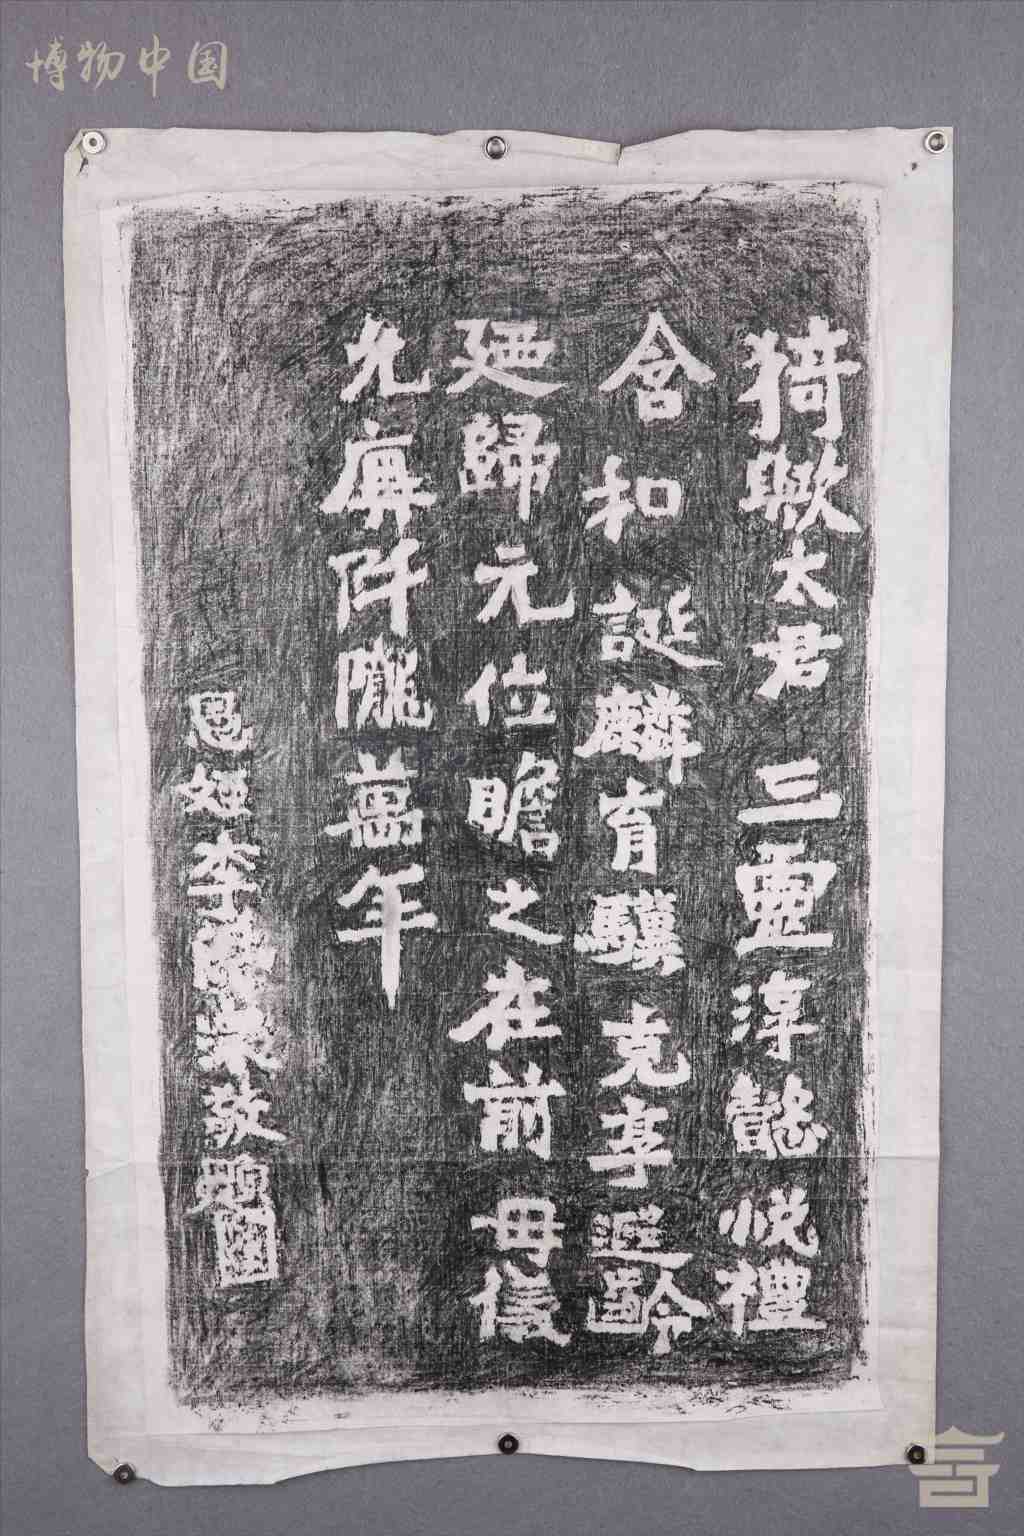 博物中国
猗歟太君三靈淳懿悦禮
含和誕麟育驥克享遐齡
廼歸元位瞻之在前毋後
光屏阡隴萬年
愚姪李敬題